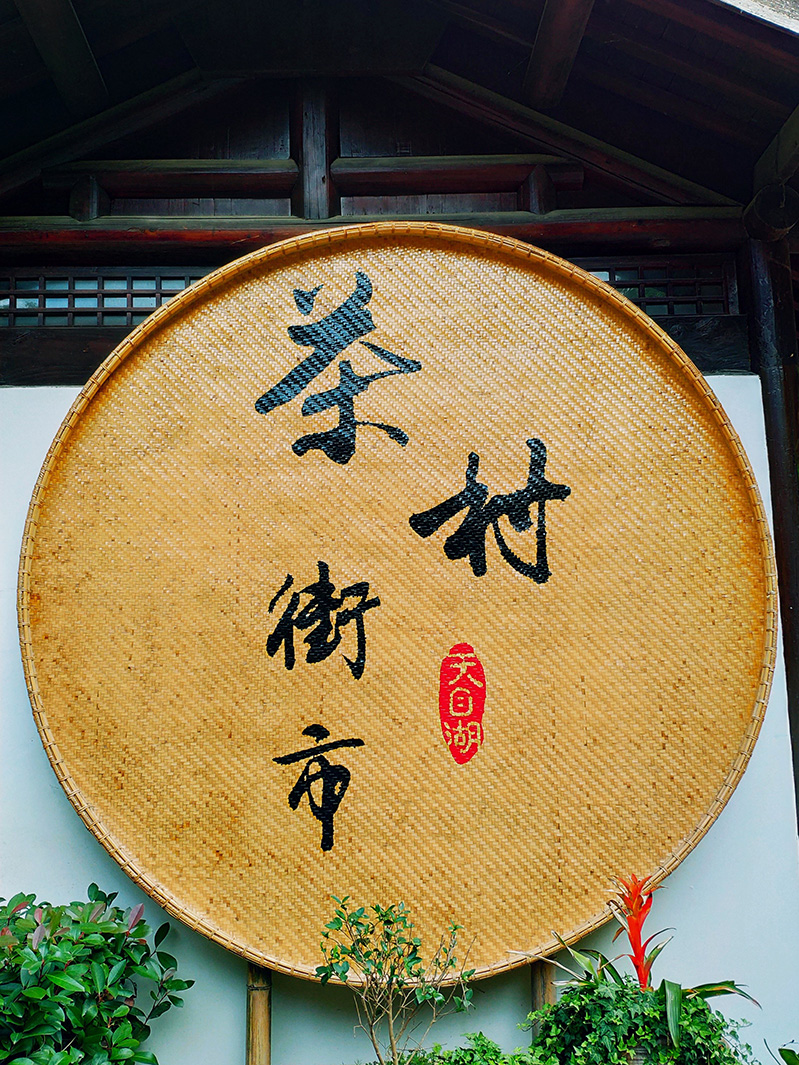 茶村
街市
天目湖